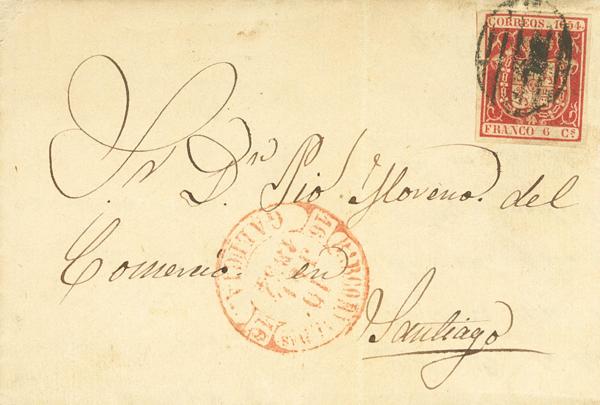 CORREOS 1854.
FRANCO 6 Cs
Sr Dn Pio Moreno. del
Comercio en
Santiago
GALICIA